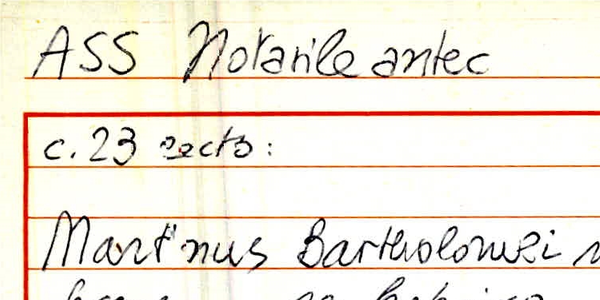 ASS Notarile antec
c. 23 recto:
Martinus Bartholomei